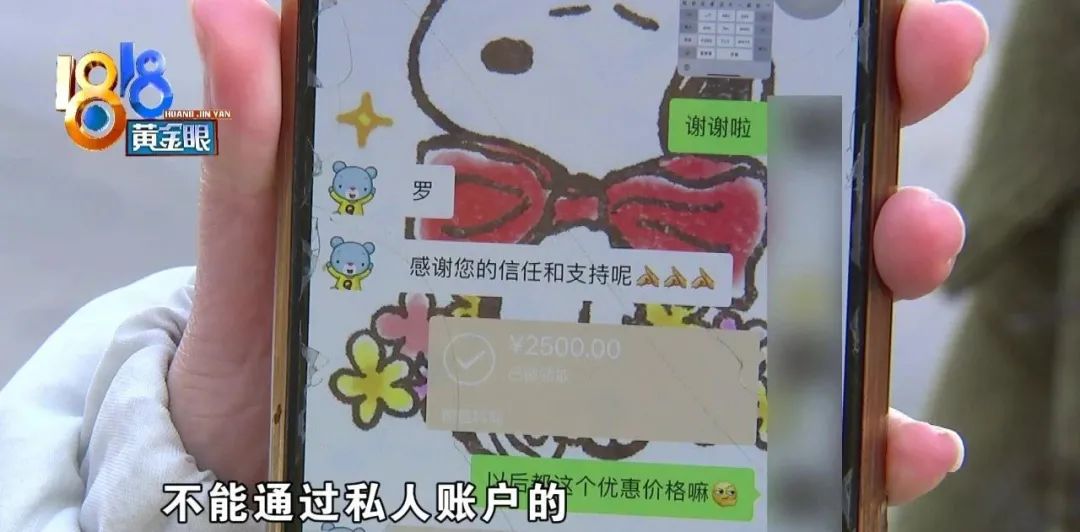 1818
HUANG JIN YAN
黄金眼
谢谢啦
罗
Q
感谢您的信任和支持呢
Q
¥2500.00
以后都这个优惠价格嘛
不能通过私人账户的